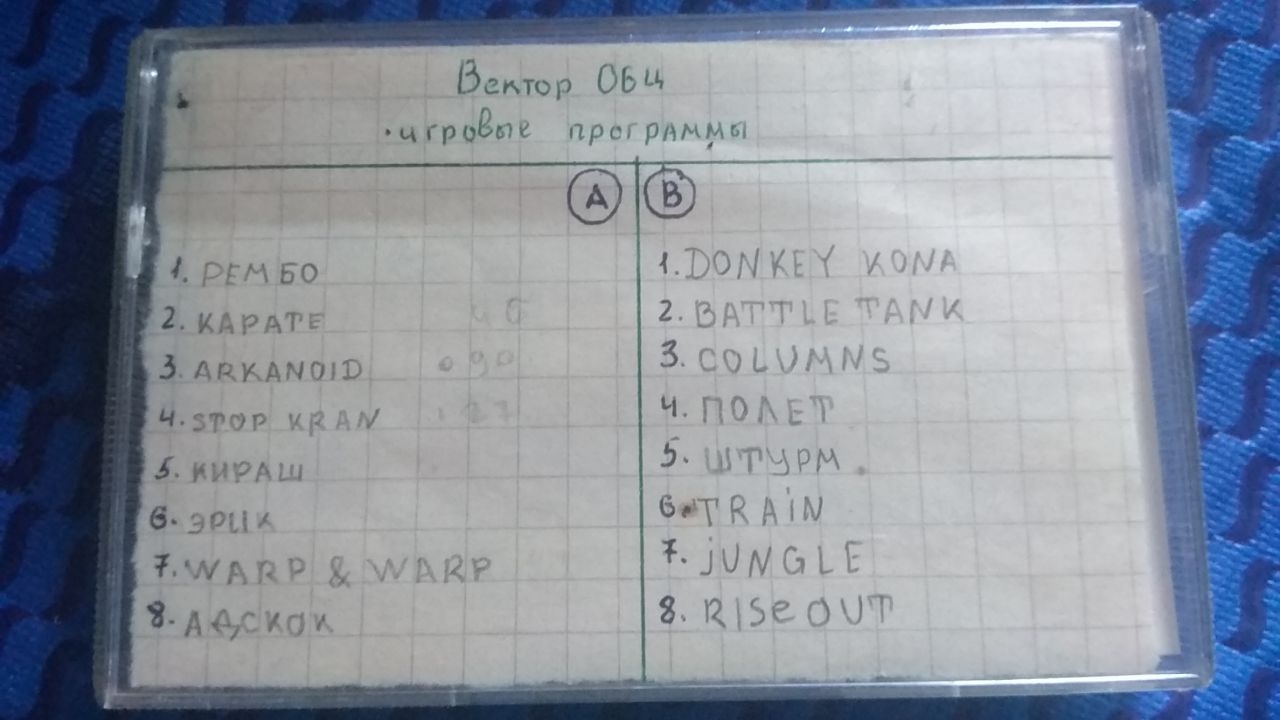 Вектор 06Ц
·игровые программы
A
B
1. РЕМБО
2. КАРАТЕ
3. ARKANOID 090
4. STOP KRAN
5. КИРАШ
6. ЭРИК
7. WARP & WARP
8. АДСКОК
1. DONKEY KONA
2. BATTLE TANK
3. COLUMNS
4. ПОЛЕТ
5. ШТУРМ.
6. TRAiN
7. jUNGLE
8. RISe OUT